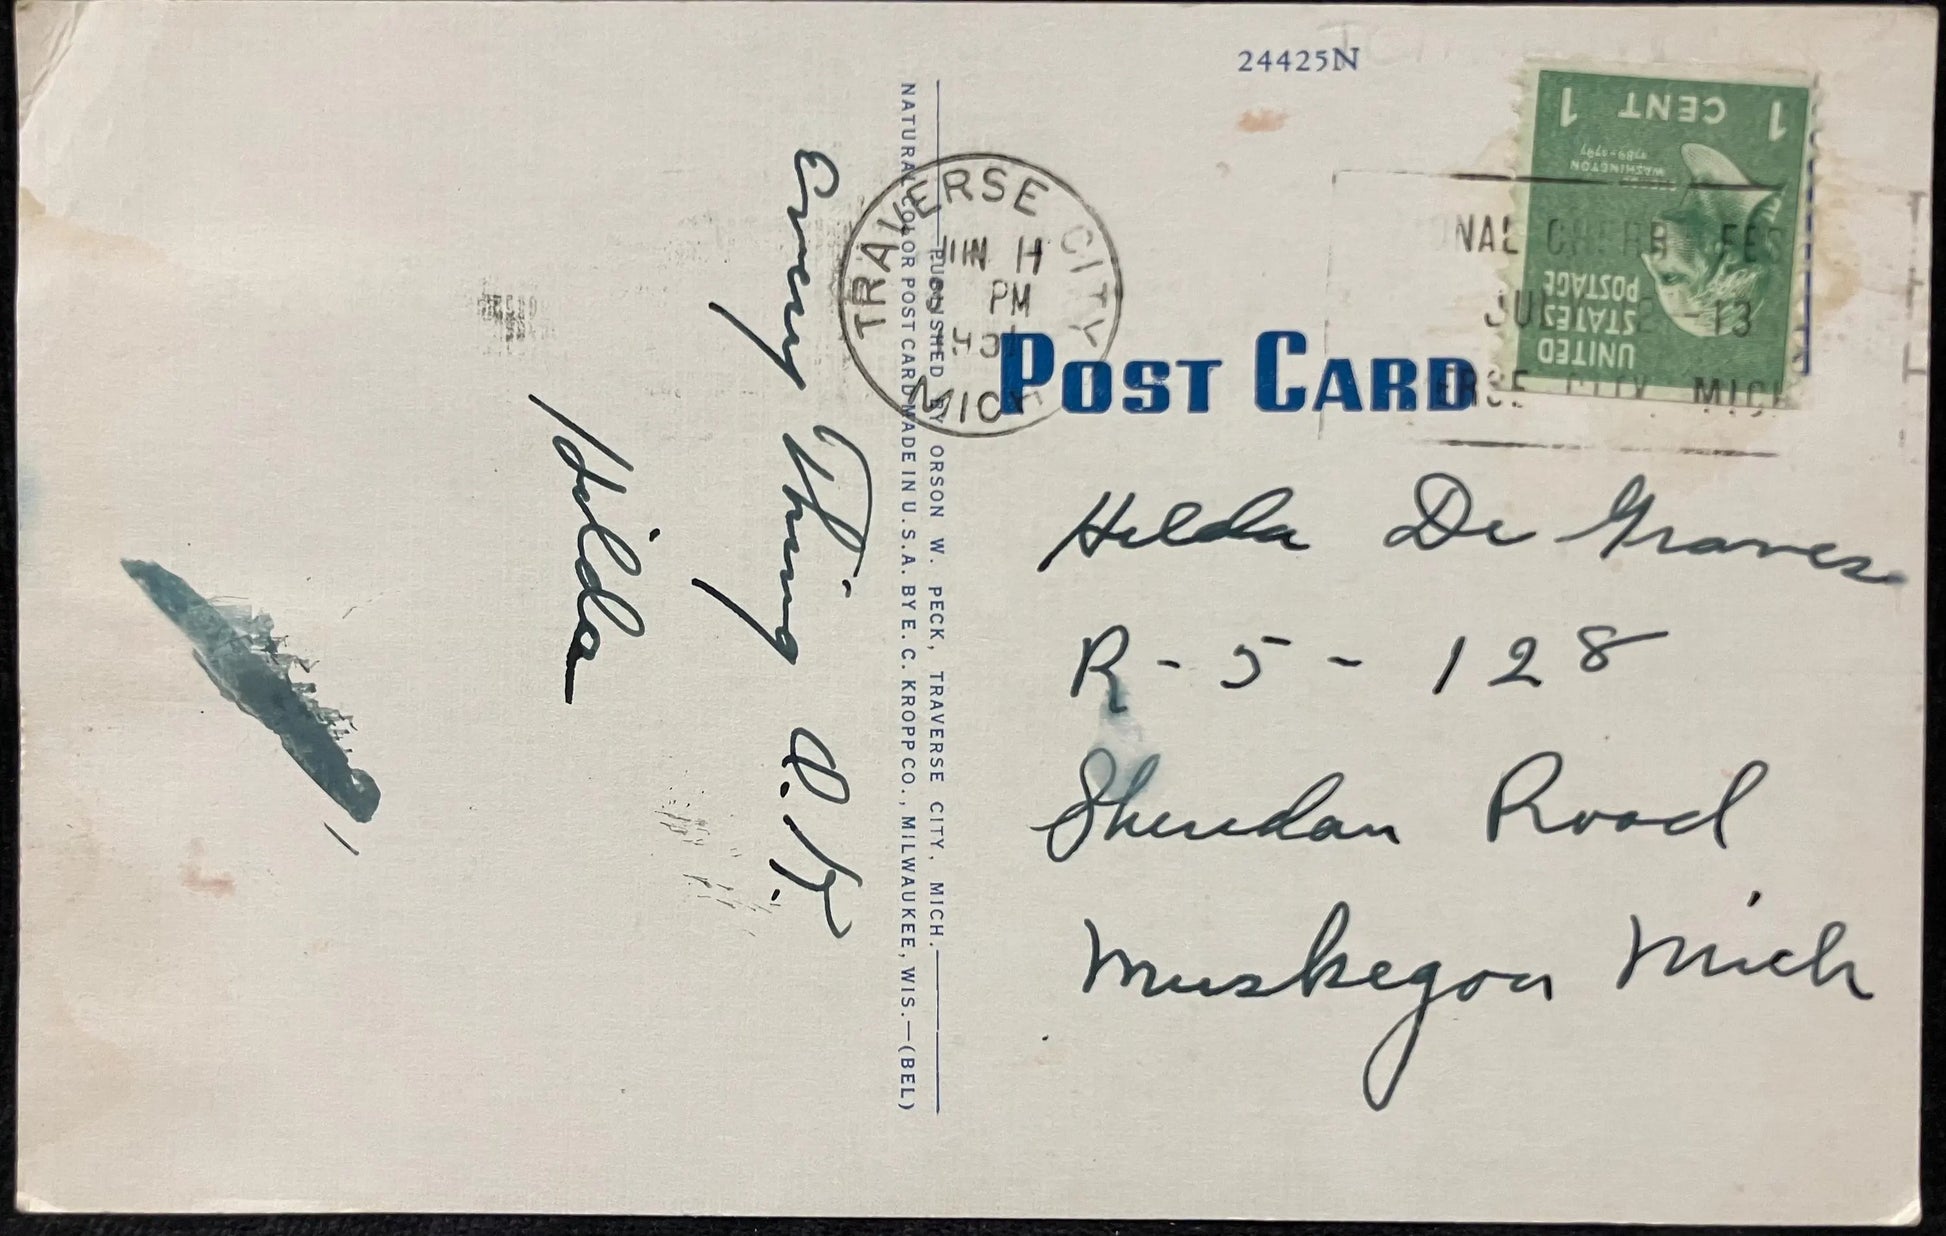 24425N
1 CENT 1
WASHINGTON
1789-1797
UNITED
STATES
POSTAGE
TRAVERSE CITY
PM
MICH
JULY -13
CITY, MICH
POST CARD
Hilda De Graves
R-5-128
Sheridan Road
Muskegon Mich
PUBLISHED BY ORSON W. PECK, TRAVERSE CITY, MICH.
NATURAL COLOR POST CARD MADE IN U.S.A. BY E. C. KROPP CO., MILWAUKEE, WIS.—(BEL)
Every Thing O.K.
Hilda